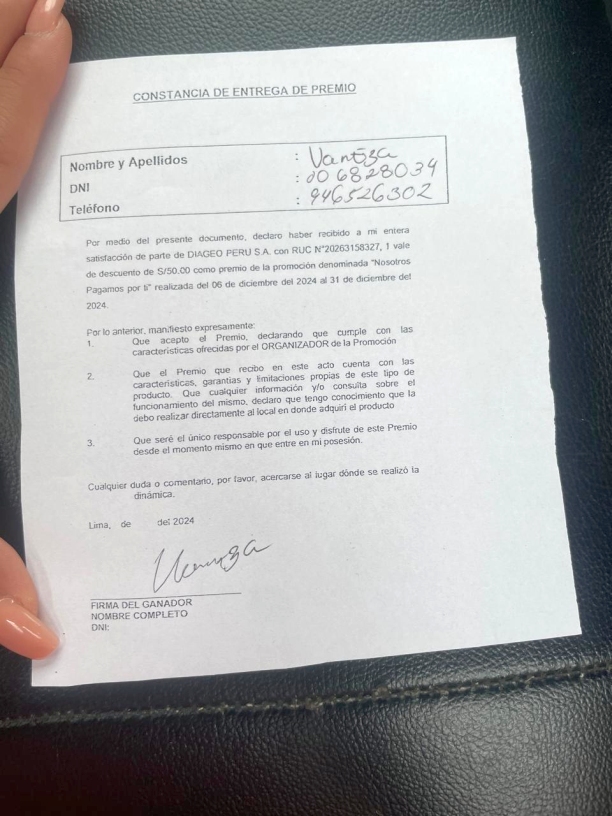 CONSTANCIA DE ENTREGA DE PREMIO
Nombre y Apellidos : Vanβζa
DNI : 00 6828034
Teléfono : 946526302
Por medio del presente documento, declaro haber recibido a mi entera
satisfacción de parte de DIAGEO PERU S.A. con RUC N°20263158327, 1 vale
de descuento de S/50.00 como premio de la promoción denominada "Nosotros
Pagamos por ti" realizada del 06 de diciembre del 2024 al 31 de diciembre del
2024.
Por lo anterior, manifiesto expresamente:
1. Que acepto el Premio, declarando que cumple con las
características ofrecidas por el ORGANIZADOR de la Promoción
2. Que el Premio que recibo en este acto cuenta con las
características, garantías y limitaciones propias de este tipo de
producto. Que cualquier información y/o consulta sobre el
funcionamiento del mismo, declaro que tengo conocimiento que la
debo realizar directamente al local en donde adquirí el producto
3. Que seré el único responsable por el uso y disfrute de este Premio
desde el momento mismo en que entre en mi posesión.
Cualquier duda o comentario, por favor, acercarse al lugar dónde se realizó la
dinámica.
Lima, de del 2024
FIRMA DEL GANADOR
NOMBRE COMPLETO
DNI: